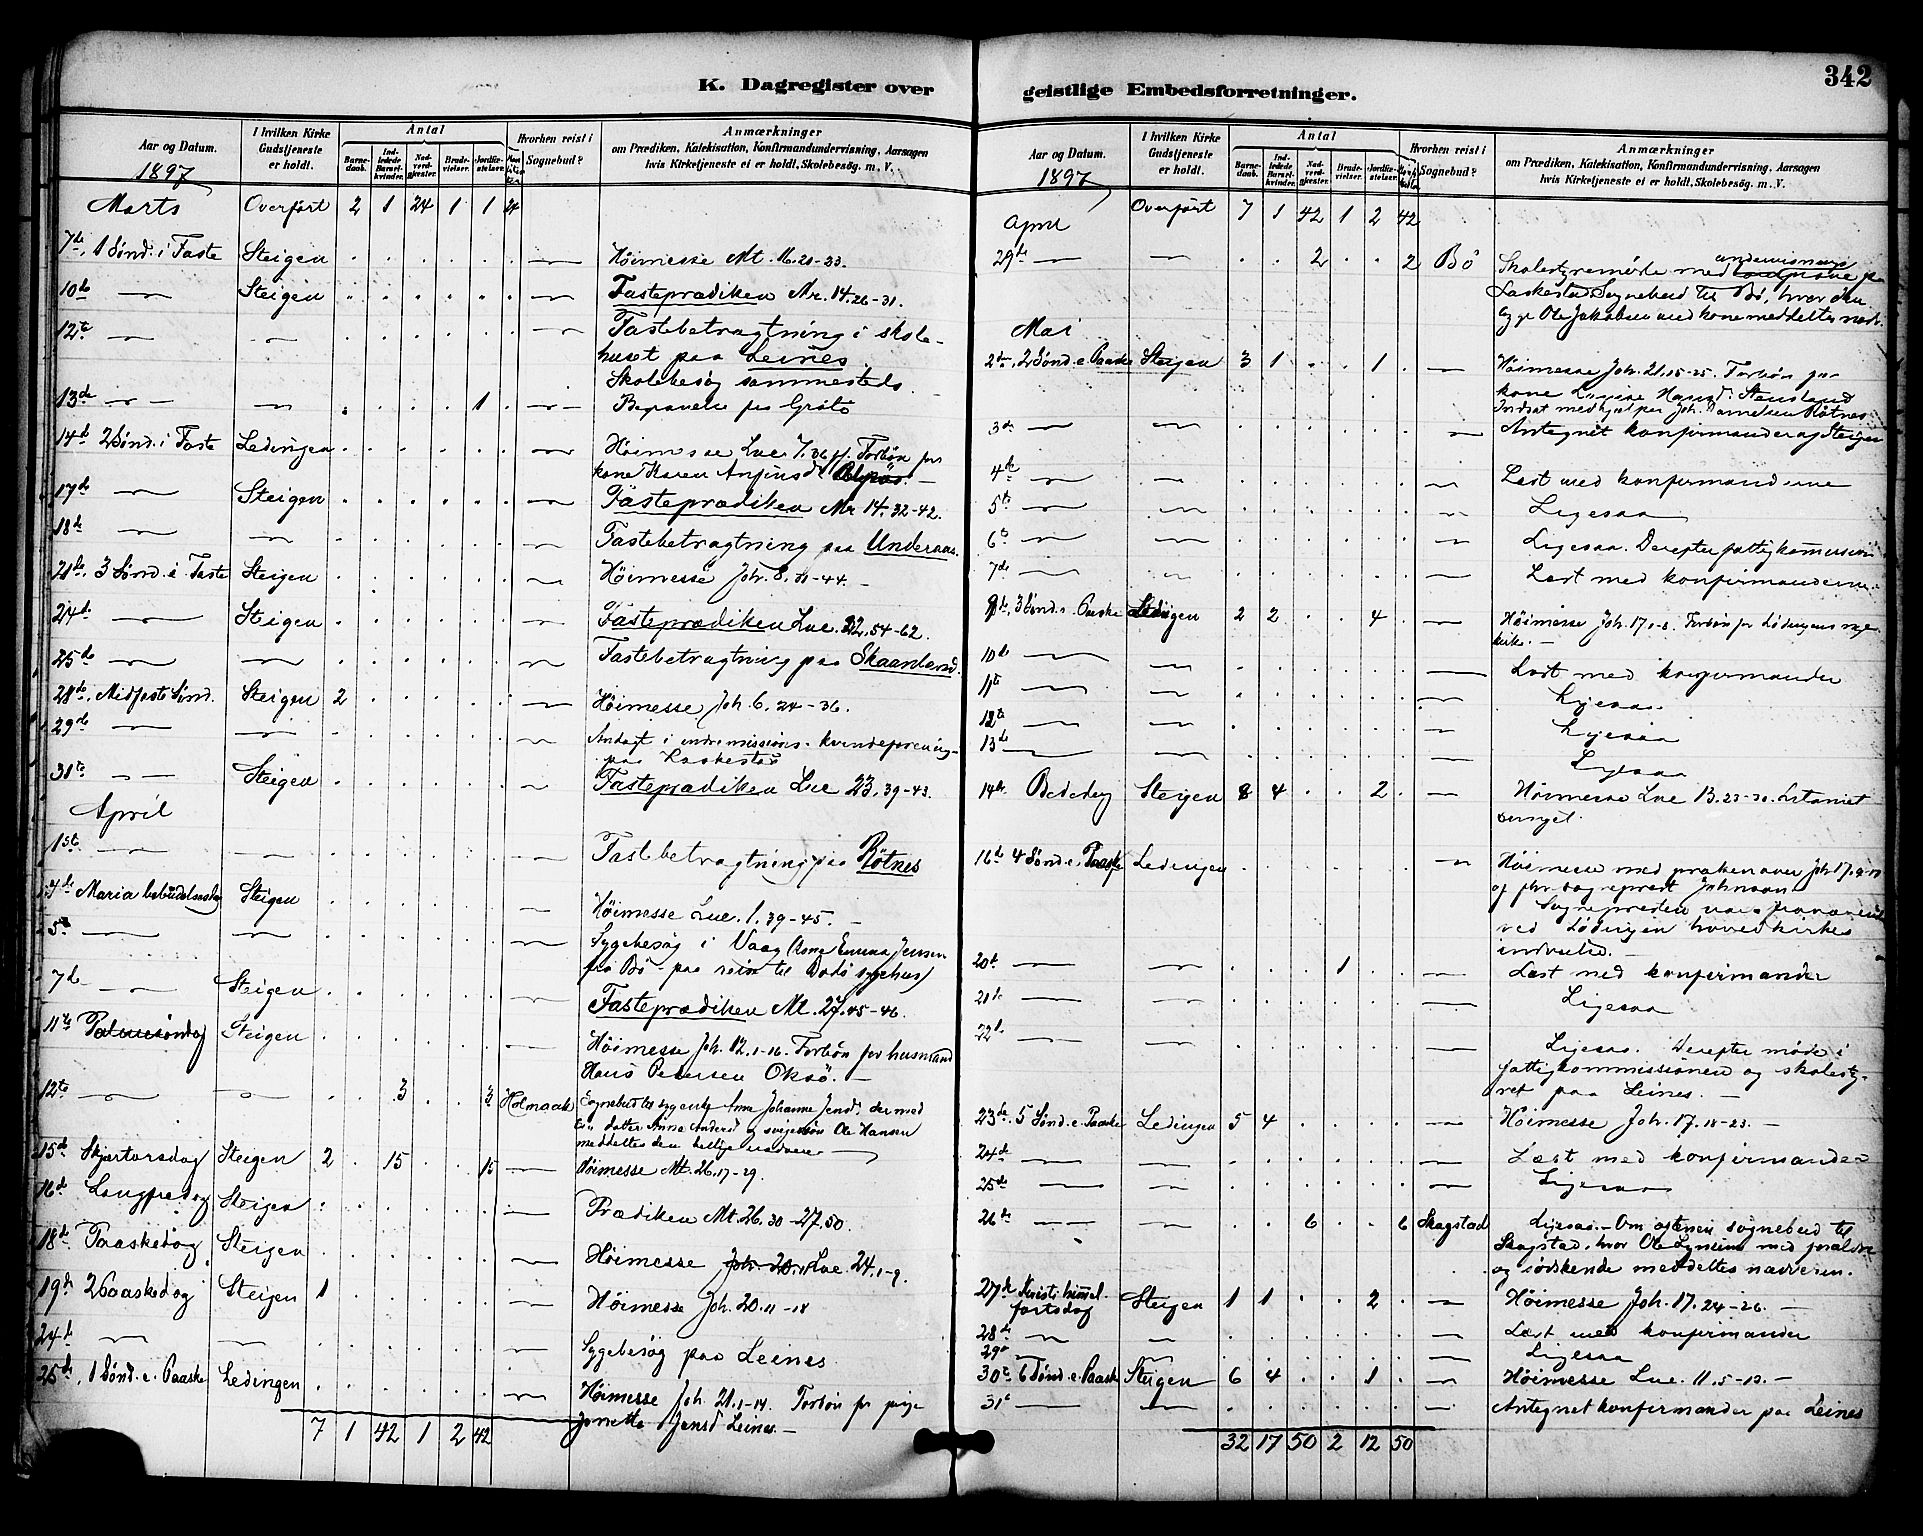 342
K. Dagregister over geistlige Embedsforretninger.
Aar og Datum. I hvilken Kirke Gudstjeneste er holdt. Antal Hvorhen reist i Sognebud? Anmærkninger
Barnedaab. Indledede Barselkvinder. Nadverdgjester. Brudevielser. Jordfæstelser.
om Prædiken, Katekisation, Konfirmandundervisning, Aarsagen
hvis Kirketjeneste ei er holdt, Skolebesög. m. V.
1897
Marts Overført 2 1 24 1 1 24
7de, 1 Sønd. i Faste Steigen Høimesse Mt. 16.21-23.
10de Steigen Fasteprædiken Mr. 14.26-31.
12te Fastebetragtning i skole-
huset paa Leines
Skolebesøg sammesteds.
13de 1 Grøtø
14de 2 Sønd. i Faste Ledingen Høimesse Luc 7.36 ff. Forbøn for
kone Karen
17de Steigen Fasteprædiken Mr 14.32-42.
18de Fastebetragtning paa Underaas.
21de, 3 Sønd. i Faste Steigen Høimesse Joh. 8.31-44.
24de Steigen Fasteprædiken Luc. 22.54-62.
25de Fastebetragtning paa Skaanland.
28de, Midfaste Sønd. Steigen 2 Høimesse Joh. 6.24-36.
29de Andagt i indremissions-kvindeforening
paa Laskestad
31te Steigen Fasteprædiken Luc 23.39-43.
April
1ste Fastebetragtning paa Røtnes
Maria bebudelsesdag Steigen Høimesse Luc. 1.39-45.
5te Sygebesøg i Vaag (kone Emma Jensen
fra Bø - paa reise til Bodø sygehus)
7de Steigen Fasteprædiken Mt. 27.45-46.
11te Palmesøndag Steigen Høimesse Joh. 12.1-16. Forbøn for husmand
Hans Petersen Oksø.
12te 3 3 Holmaak Sognebud til Johanne Jensd. der med
datter Anna Andersd. og svigersøn Ole Hansen
meddeltes den hellige nadvere
15de Skjærtorsdag Steigen 2 15 15 Høimesse Mt. 26.17-29.
16de Langfredag Steigen Prædiken Mt. 26.30-27.50.
18de Paaskedag Steigen Høimesse Joh. 20. Luc. 24.1-9.
19de 2 Paaskedag Steigen 1 Høimesse Joh. 20.11-18
24de Sygebesøg paa Leines
25de, 1 Sønd. e. Paaske Ledingen Høimesse Joh. 21.1-14. Forbøn for pige
Jensd Leines.
7 1 42 1 2 42
Aar og Datum. I hvilken Kirke Gudstjeneste er holdt. Antal Hvorhen reist i Sognebud? Anmærkninger
Barnedaab. Indledede Barselkvinder. Nadverdgjester. Brudevielser. Jordfæstelser.
om Prædiken, Katekisation, Konfirmandundervisning, Aarsagen
hvis Kirketjeneste ei er holdt, Skolebesög. m. V.
1897
Overført 7 1 42 1 2 42
April
29de 2 2 Bø Skolestyremøde med
Laskestad. Sognebud til Bø, hvor den
syge Ole Jakobsen med kone meddeltes nadv.
Mai
2de, 2 Sønd. e. Paaske Steigen 3 1 1 Høimesse Joh. 21.15-25. Forbøn for
kone
Indsat medhjelper Joh. Danielsen Røtnes
3de Antegnet konfirmander af Steigen
4de Læst med konfirmanderne
5te Ligesaa
6te Ligesaa. Derefter fattigkommission
7de Læst med konfirmanderne
9de, 3 Sønd. e. Paaske Ledingen 2 2 4 Høimesse Joh. 17.1-8. Forbøn for Lødingens nye
kirke.
10de Læst med konfirmander
11te Ligesaa.
12te Ligesaa
13de Ligesaa
14de Bededag Steigen 8 4 2 Høimesse Luc 13.23-30. Litaniet
sunget.
16de 4 Sønd. e. Paaske Ledingen Høimesse med præken over Joh 17.
af hr. sogneprest Johnson
Sognepresten var fraværende
ved Lødingen hovedkirkes
indvielse.
20de 1 Læst med konfirmander
21de Ligesaa
22de Ligesaa. Derefter møde i
fattigkommissionen og skolesty-
ret paa Leines.
23de, 5 Sønd. e. Paaske Ledingen 5 4 Høimesse Joh. 17.18-23.
24de Læst med konfirmander
25de Ligesaa
26de 6 6 Skagstad Ligesaa. - Om aftenen sognebud til
Skagstad, hvor Ole med forældre
og søskende meddeltes nadveren.
27de Kristi himmel-
fartsdag Steigen 1 1 2 Høimesse Joh. 17.24-26.
28de Læst med konfirmander
29de Ligesaa
30te 6 Sønd. e. Paaske Steigen 6 4 1 Høimesse Luc. 11.5-13.
31te Antegnet konfirmander paa Leines
32 17 50 2 12 50